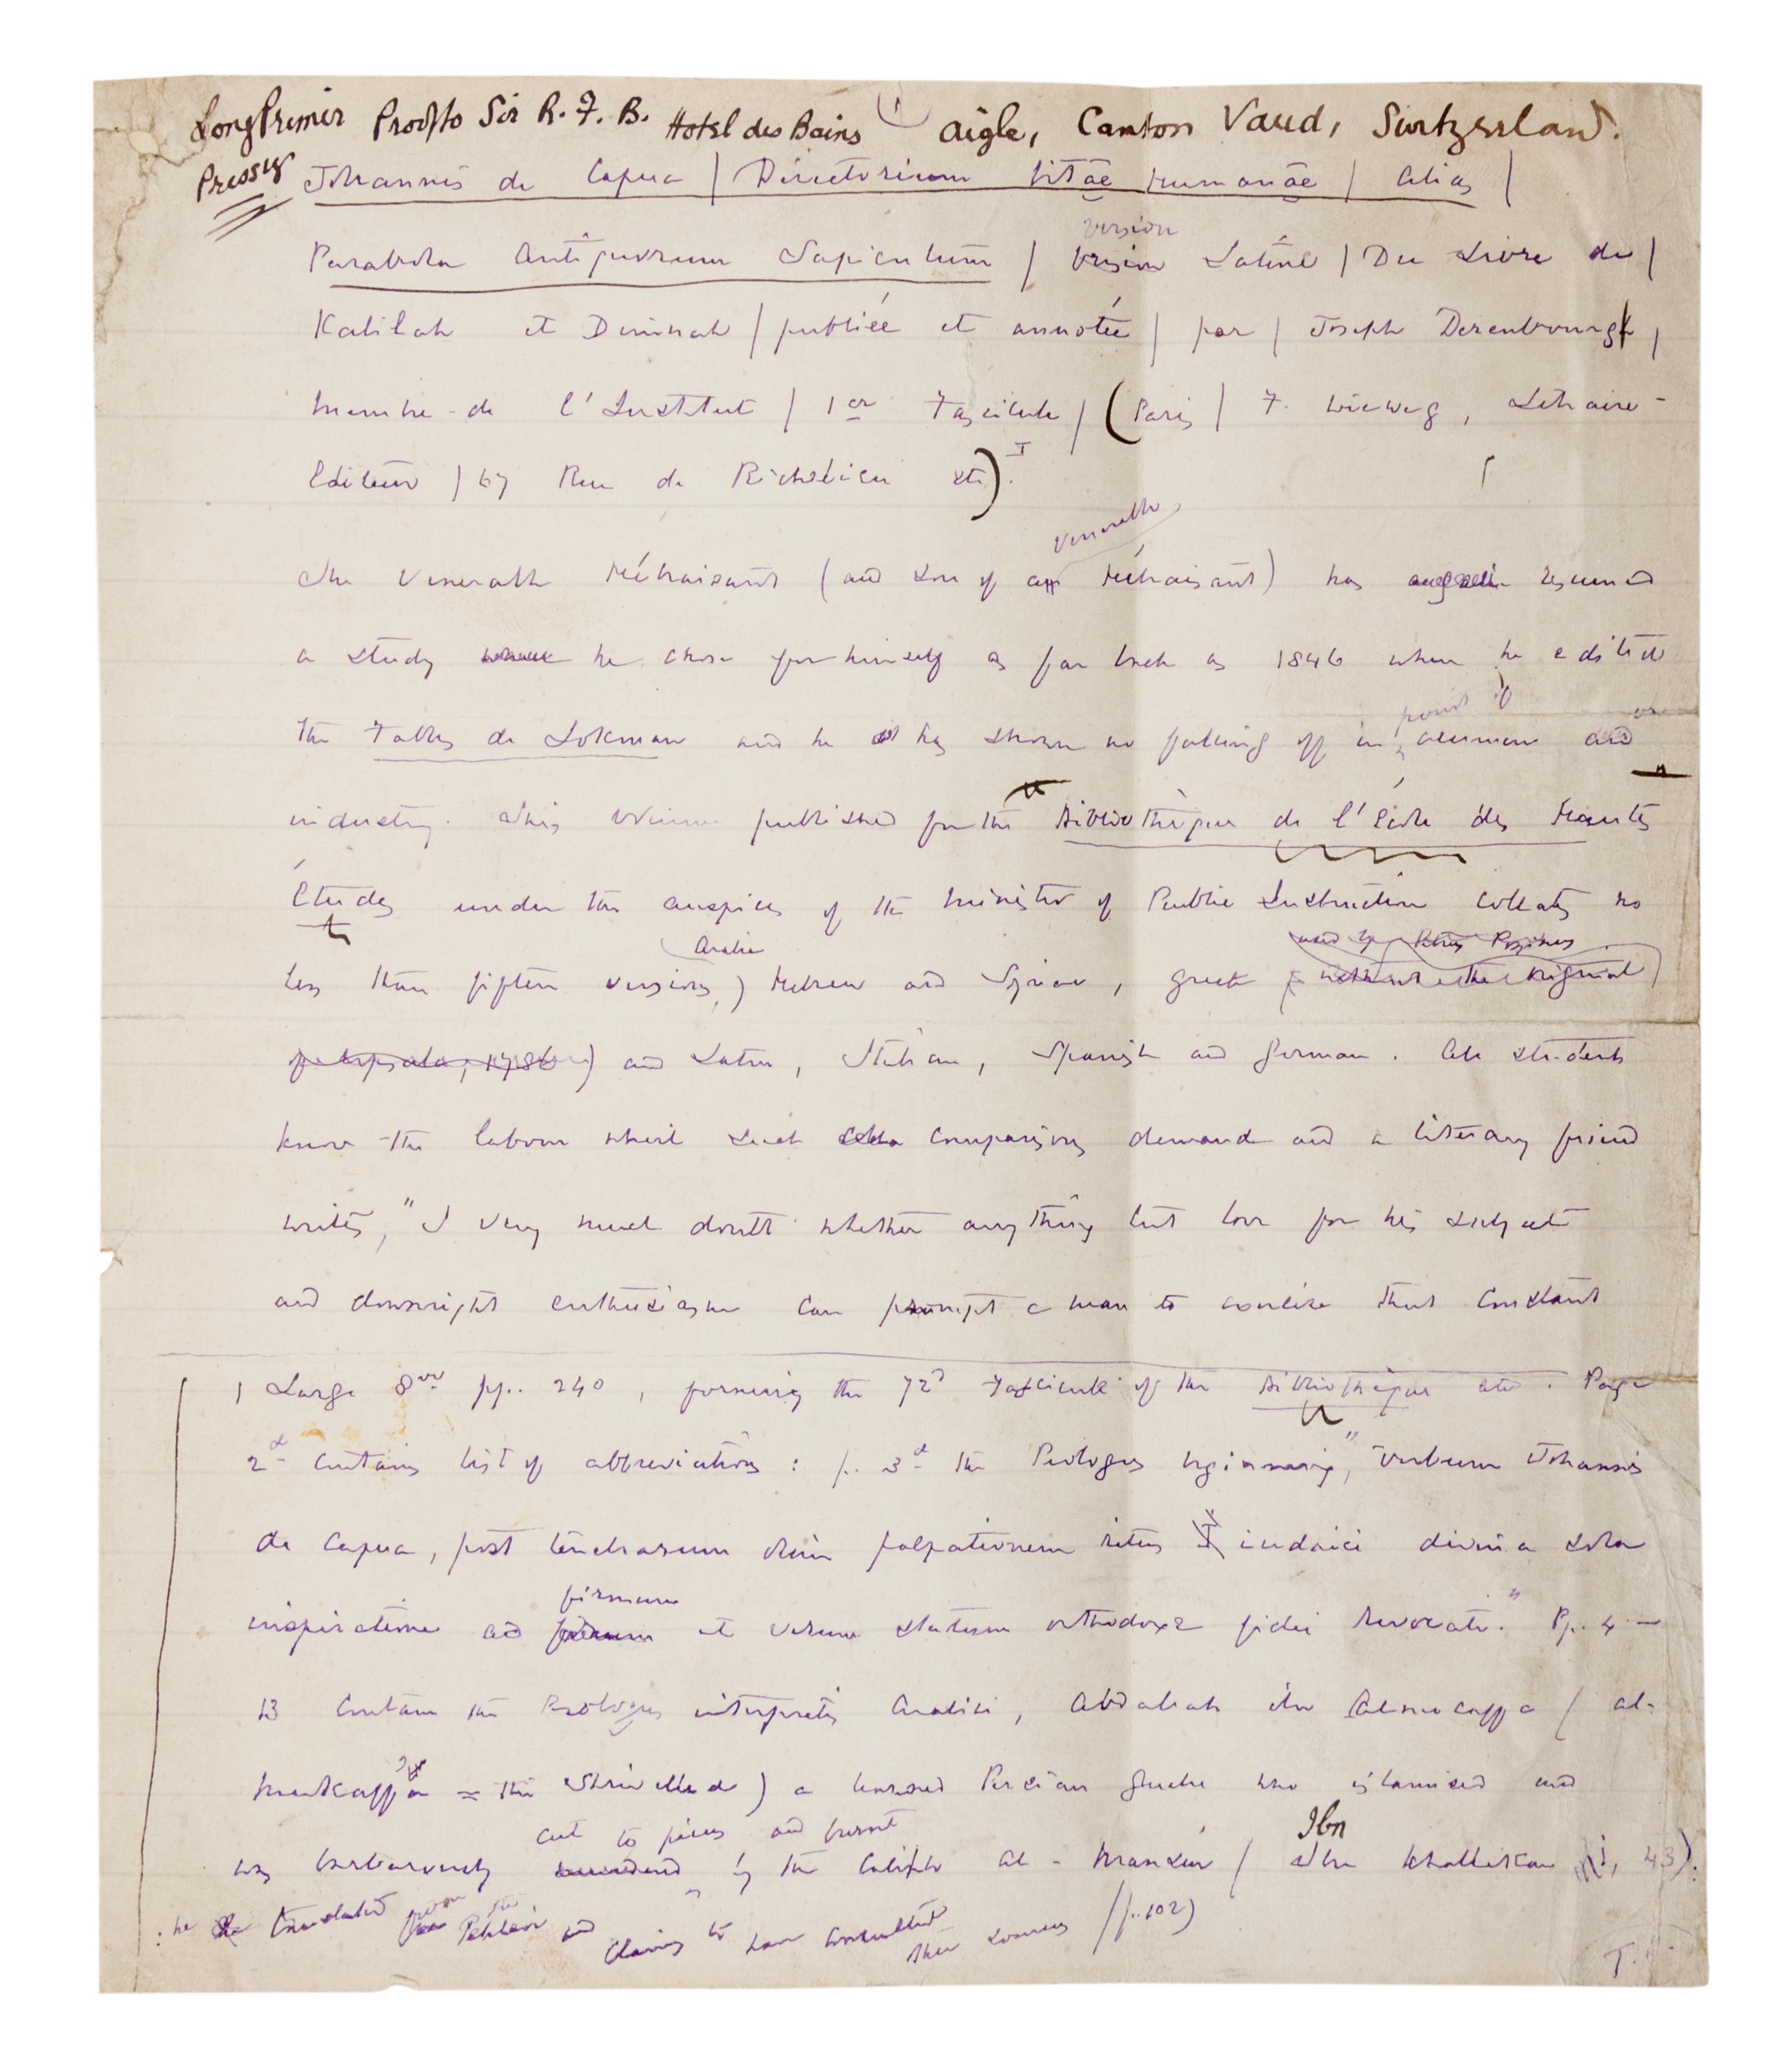 Long Primer Proof to Sir R. F. B. Hotel des Bains (1) Aigle, Canton Vaud, Switzerland.
Press
Johannis de Capua | Directorium Vitæ Humanæ | Alias |
version
Parabola Antiquorum Sapientum | version Latine | Du Livre de |
Kalilah et Dimnah | publiée et annotée | par | Joseph Derenbourg,
Membre de l'Institut | 1er Fascicule | (Paris | F. Wieweg, Libraire-
Editeur | 67 Rue de Richelieu etc). I
venerable
The Venerable Hébraisant (and son of a Hébraisant) has again resumed
a study he chose for himself as far back as 1846 when he edited
point of or
the Fables de Lokman and he has shown no falling off in acumen and
industry. This volume published for the Bibliothèque de l'École des Hautes
Études under the auspices of the Minister of Public Instruction collates no
Arabic and by Petrus Possinus
less than fifteen versions, Hebrew and Syriac, Greek ( without the original
of Upsala, 1786) and Latin, Italian, Spanish and German. All students
know the labour which such comparisons demand and a literary friend
writes, "I very much doubt whether anything but love for his subject
and downright enthusiasm can prompt a man to exercise that constant
1 Large 8vo pp. 240, forming the 72d Fascicule of the Bibliothèque etc. Page
2d contains list of abbreviations: p. 3d the Prologus beginning, "Verbum Johannis
de Capua, post tenebrarum olim palpationem ritus iudaici divina sola
firmum
inspiratione ad et verum statum orthodoxæ fidei revocati." Pp. 4-
13 contain the Prologus interpretis Arabici, Abdalah ibn Almocaffa (Al-
Mukaffa = the shrivelled) a learned Persian Guebre who islamised and
cut to pieces and burnt Ibn
was barbarously murdered by the Caliph Al-Mansúr (Ibn Khallikan i, 43).
: he translated from the Pehlevi and claims to have consulted other sources (p. 102)